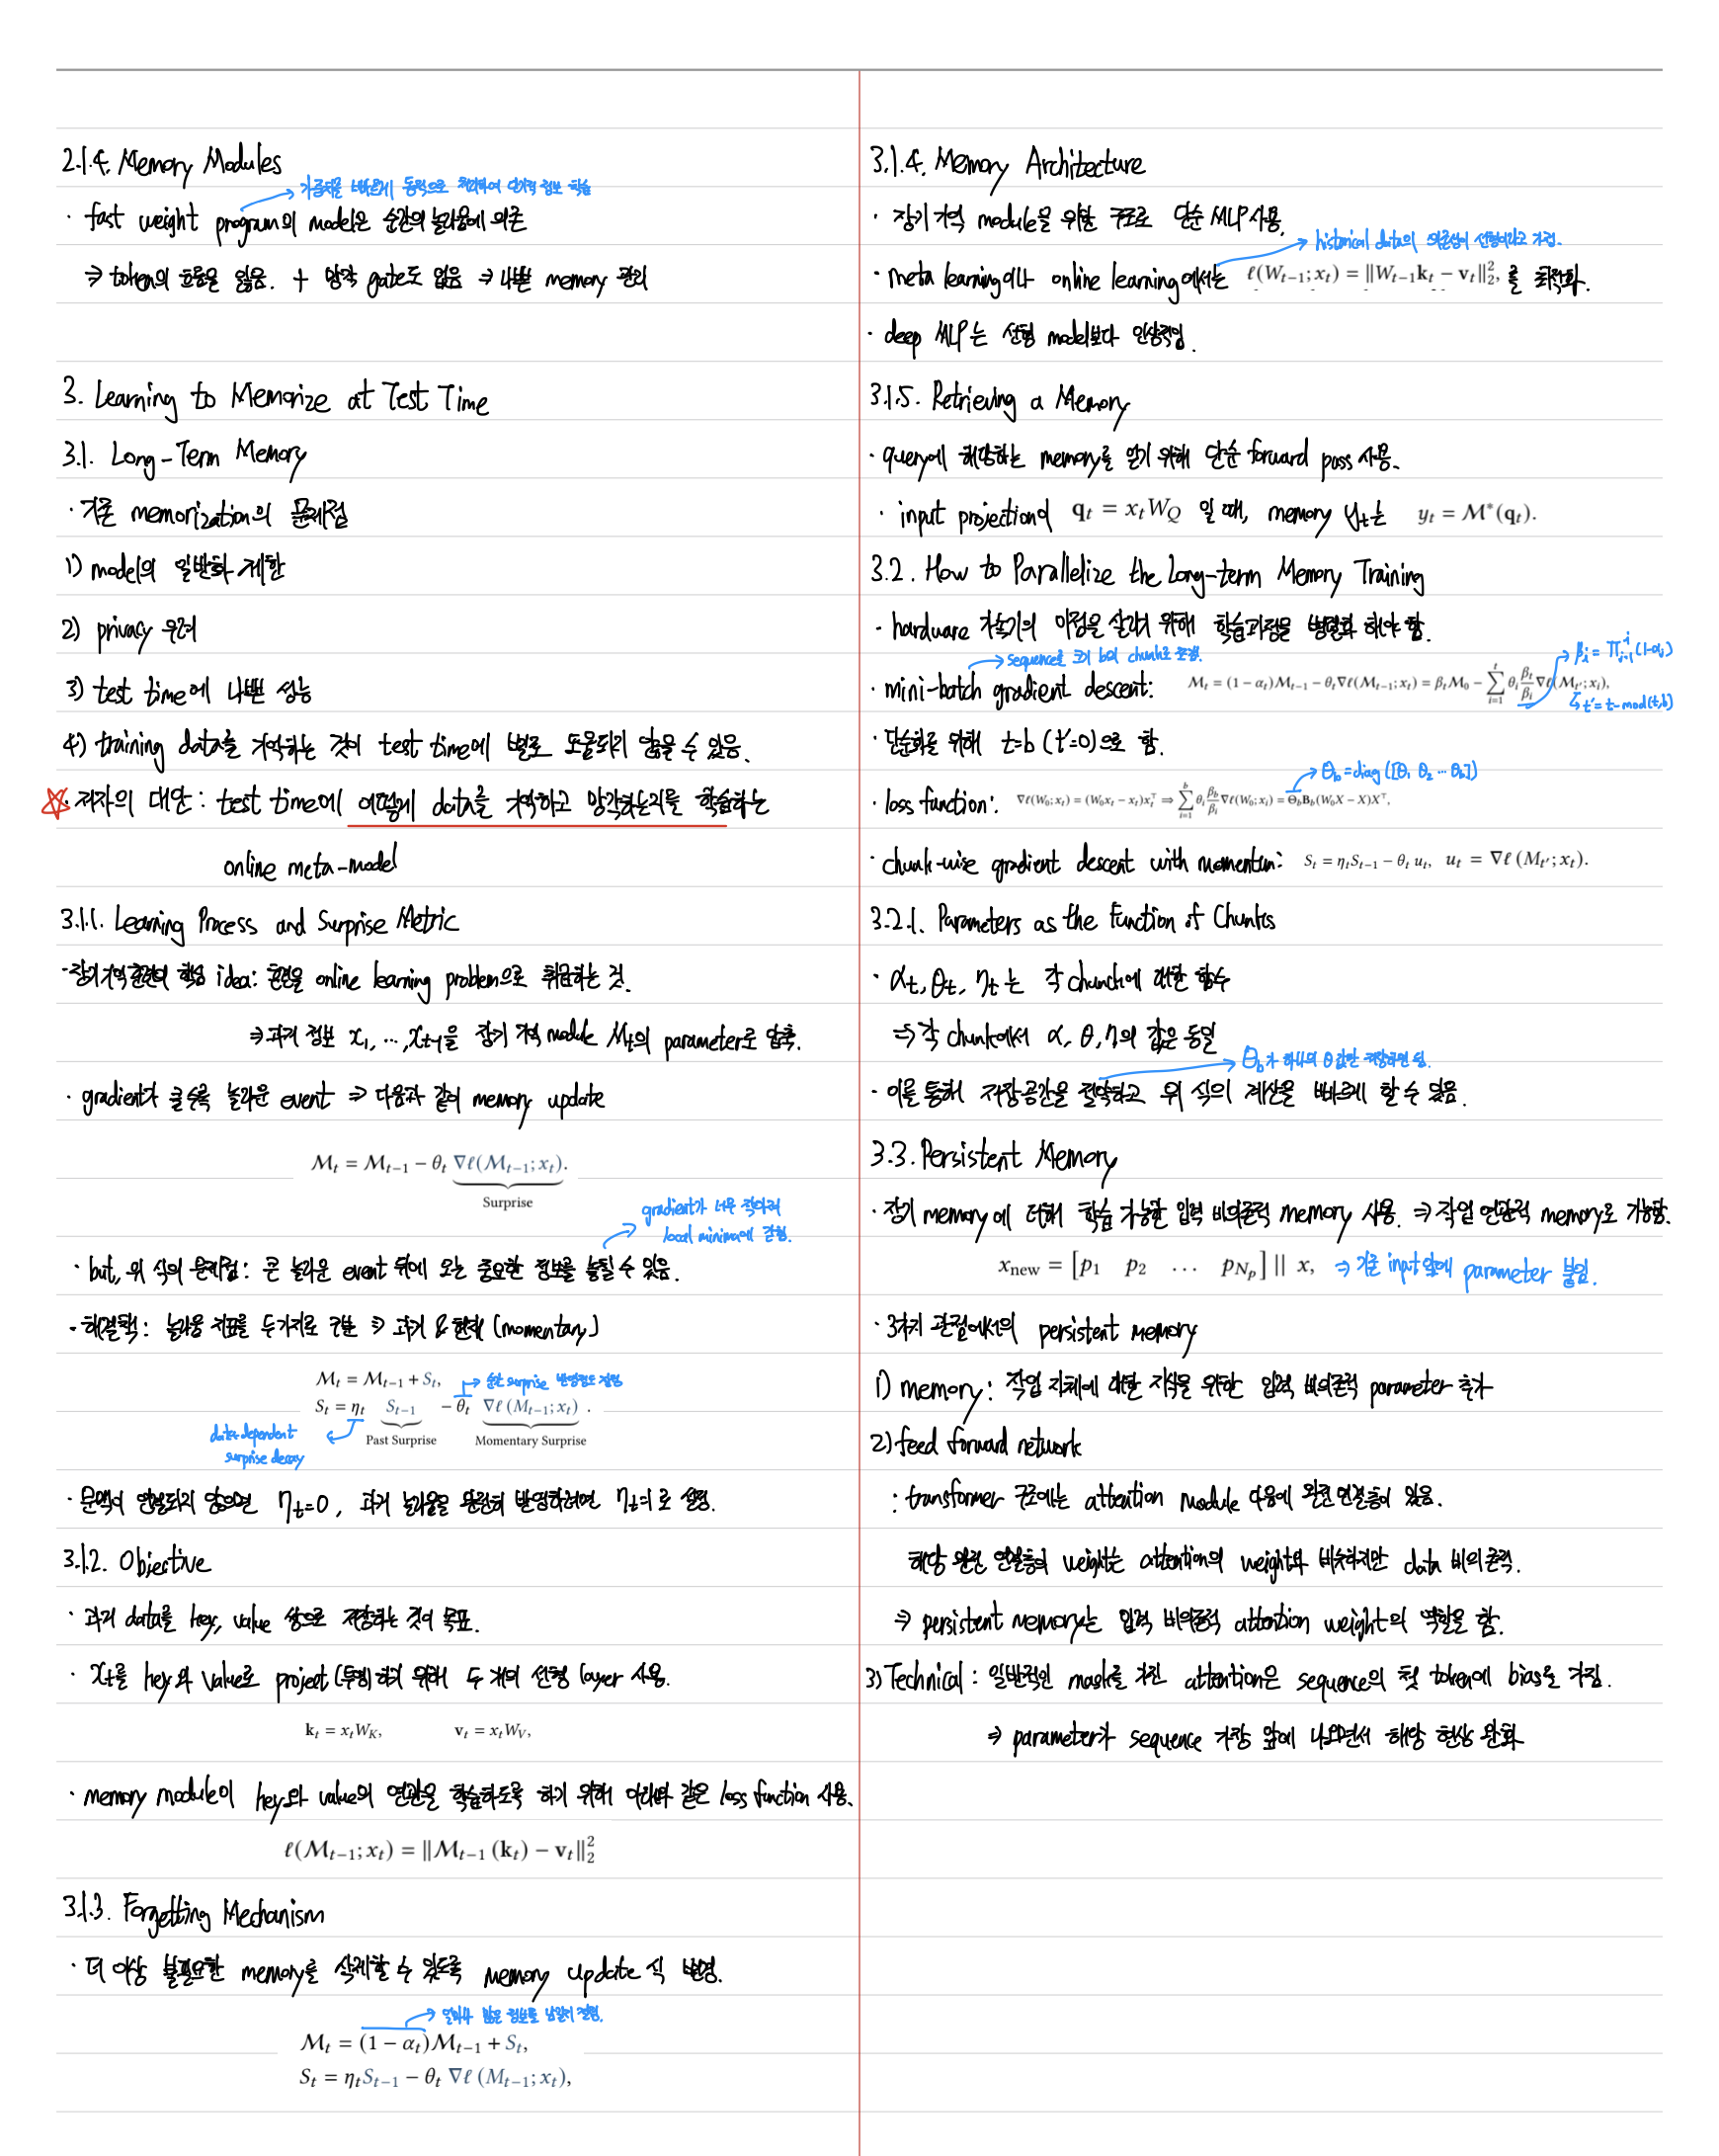 2.1.4. Memory Modules
가중치를 빠르게 동적으로 처리하여 단기적 정보 학습
· fast weight program의 model은 순간의 놀라움에 의존
⇒ token의 흐름을 잃음. + 망각 gate도 없음 ⇒ 나쁜 memory 관리
3. Learning to Memorize at Test Time
3.1. Long-Term Memory
· 기존 memorization의 문제점
1) model의 일반화 제한
2) privacy 우려
3) test time에 나쁜 성능
4) training data를 기억하는 것이 test time에 별로 도움되지 않을 수 있음.
☆· 저자의 대안 : test time에 어떻게 data를 기억하고 망각하는지를 학습하는
online meta-model
3.1.1. Learning Process and Surprise Metric
· 장기 기억 훈련의 핵심 idea: 훈련을 online learning problem으로 취급하는 것.
⇒ 과거 정보 x₁, ⋯, xₜ₋₁을 장기 기억 module Mₜ의 parameter로 압축.
· gradient가 클수록 놀라운 event ⇒ 다음과 같이 memory update
ℳₜ = ℳₜ₋₁ − θₜ ∇ℓ(ℳₜ₋₁; xₜ).
Surprise
gradient가 너무 작아져
local minima에 갇힘.
· but, 위 식의 문제점 : 큰 놀라운 event 뒤에 오는 중요한 정보를 놓칠 수 있음.
· 해결책 : 놀라움 지표를 두가지로 구분 ⇒ 과거 & 현재 (momentary)
ℳₜ = ℳₜ₋₁ + Sₜ,
순간 surprise 반영정도 결정
Sₜ = ηₜ Sₜ₋₁ − θₜ ∇ℓ (Mₜ₋₁; xₜ) .
Past Surprise Momentary Surprise
data-dependent
surprise decay
· 문맥이 연결되지 않으면 ηₜ=0, 과거 놀라움을 완전히 반영하려면 ηₜ=1로 설정.
3.1.2. Objective
· 과거 data를 key, value 쌍으로 저장하는 것이 목표.
· xₜ를 key와 value로 project (투영)하기 위해 두 개의 선형 layer 사용.
kₜ = xₜW_K, vₜ = xₜW_V,
· memory module이 key와 value의 연관을 학습하도록 하기 위해 아래와 같은 loss function 사용.
ℓ(ℳₜ₋₁; xₜ) = ‖ℳₜ₋₁ (kₜ) − vₜ‖₂²
3.1.3. Forgetting Mechanism
· 더 이상 불필요한 memory를 삭제할 수 있도록 memory update 식 변경.
얼마나 많은 정보를 남길지 결정.
ℳₜ = (1 − αₜ)ℳₜ₋₁ + Sₜ,
Sₜ = ηₜSₜ₋₁ − θₜ ∇ℓ (Mₜ₋₁; xₜ),
3.1.4. Memory Architecture
· 장기 기억 module을 위한 구조로 단순 MLP 사용.
historical data의 의존성이 선형이라고 가정.
· meta learning이나 online learning에서는 ℓ(Wₜ₋₁; xₜ) = ‖Wₜ₋₁kₜ − vₜ‖₂², 를 최적화.
· deep MLP는 선형 model보다 인상적임.
3.1.5. Retrieving a Memory
· query에 해당하는 memory를 얻기 위해 단순 forward pass 사용.
· input projection이 qₜ = xₜW_Q 일 때, memory yₜ는 yₜ = ℳ*(qₜ).
3.2. How to Parallelize the Long-term Memory Training
· hardware 가속기의 이점을 살리기 위해 학습과정을 병렬화 해야 함.
sequence를 크기 b의 chunk로 분할.
βᵢ = ∏ⁱⱼ₌₁(1-αⱼ)
· mini-batch gradient descent: ℳₜ = (1 − αₜ)ℳₜ₋₁ − θₜ∇ℓ(ℳₜ₋₁; xₜ) = βₜℳ₀ − ∑ᵗᵢ₌₁ θᵢ βₜ/βᵢ ∇ℓ(ℳₜ′; xᵢ),
t′= t-mod(t,b)
· 단순화를 위해 t=b (t′=0)으로 함.
Θb = diag([θ₁ θ₂ ⋯ θb])
· loss function: ∇ℓ(W₀; xₜ) = (W₀xₜ − xₜ)xₜ⊤ ⇒ ∑ᵇᵢ₌₁ θᵢ βb/βᵢ ∇ℓ(W₀; xᵢ) = ΘbBb(W₀X − X)X⊤,
· chunk-wise gradient descent with momentum: Sₜ = ηₜSₜ₋₁ − θₜ uₜ, uₜ = ∇ℓ (Mₜ′; xₜ).
3.2.1. Parameters as the Function of Chunks
· αₜ, θₜ, ηₜ 는 각 chunk에 대한 함수
⇒ 각 chunk에서 α, θ, η의 값은 동일
Θb가 하나의 θ값만 저장하면 됨.
· 이를 통해 저장공간을 절약하고 위 식의 계산을 빠르게 할 수 있음.
3.3. Persistent Memory
· 장기 memory에 더해 학습 가능한 입력 비의존적 memory 사용. ⇒ 작업 연관적 memory로 기능함.
x_new = [p₁ p₂ … p_Nₚ] || x, ⇒ 기존 input앞에 parameter 붙임.
· 3가지 관점에서의 persistent memory
1) memory : 작업 자체에 대한 지식을 위한 입력 비의존적 parameter 추가
2) feed forward network
: transformer 구조에는 attention module 다음에 완전 연결층이 있음.
해당 완전 연결층의 weight는 attention의 weight와 비슷하지만 data 비의존적.
⇒ persistent memory는 입력 비의존적 attention weight의 역할을 함.
3) Technical : 일반적인 mask를 가진 attention은 sequence의 첫 token에 bias를 가짐.
⇒ parameter가 sequence 가장 앞에 나오면서 해당 현상 완화